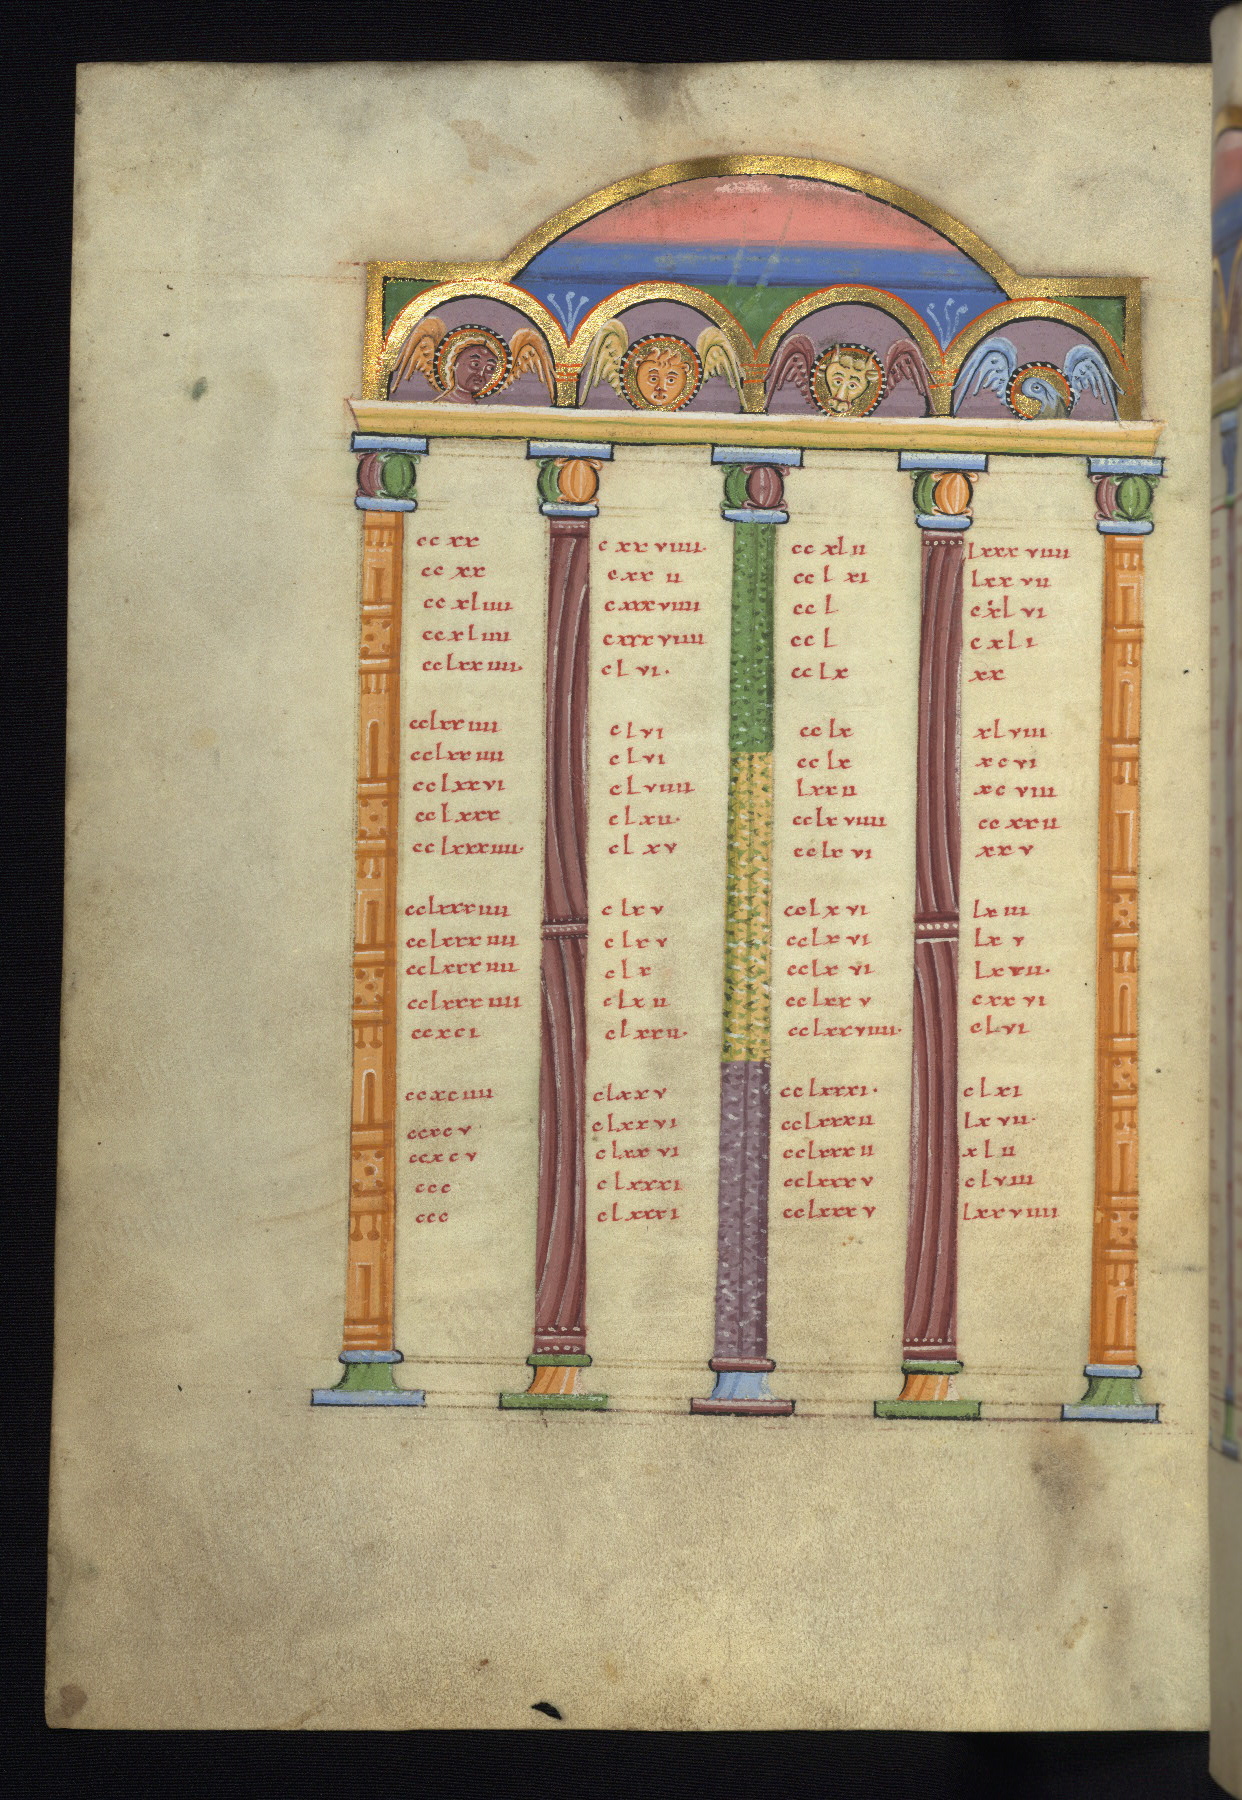 cc xx c xx viiii. cc xl ii lxxx viiii
cc xx cxx ii cc l xi lxx vii
cc xl iiii cxxxviiii cc l cxl vi
ccxl iiii cxxx viiii cc l c xl i
cclxx iiii. cl vi. cc lx xx
cclxx iiii cl vi cc lx xl viii
cclxx iiii cl vi cc lx xc vi
cclxx vi cl viiii lxx ii xc viii
cc lxxx c lxii. cclx viiii cc xxii
cc lxxxiiii. cl xv cclx vi xx v
cclxxx iiii c lx v cclx vi lx iii
cclxxx iiii c lx v cclx vi lx v
cclxxx iiii c lx cclx vi lx vii.
cclxxx iiii clx ii cclxx v cxx vi
ccxci c lxxii. cclxxviiii. cl vi
ccxc iiii clxx v cc lxxxi. c lxi
ccxc v clxx vi cclxxx ii lx vii.
ccxc v c lxx vi cclxxx ii xl ii
ccc c lxxxi cclxxx v c l viii
ccc c lxxxi cclxxx v lxx viiii